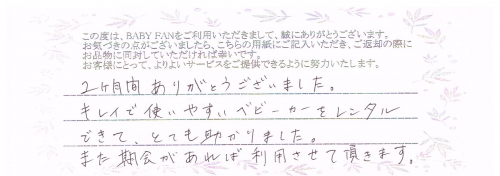 この度は、BABY FANをご利用いただきまして、誠にありがとうございます。
お気づきの点がございましたら、こちらの用紙にご記入いただき、ご返却の際に
お品物に同封していただければ幸いです。
お客様にとって、よりよいサービスをご提供できるように努力いたします。
2ヶ月間ありがとうございました。
キレイで使いやすいベビーカーをレンタル
できて、とても助かりました。
また期会があれば利用させて頂きます。